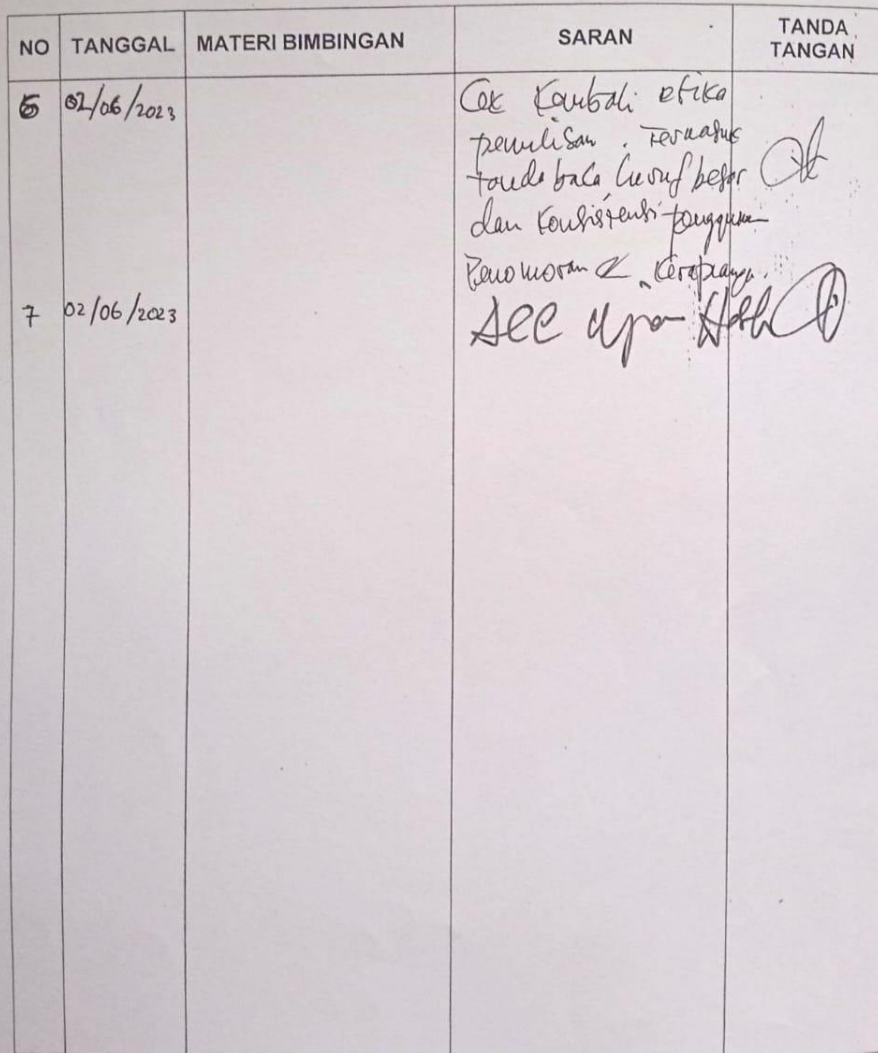 NO TANGGAL MATERI BIMBINGAN SARAN TANDA TANGAN
6 02/06/2023 Cek kembali etika
penulisan. Termasuk
tanda baca huruf besar
dan konsistensi
Penomoran & kerapian
7 02/06/2023 Acc Ujian